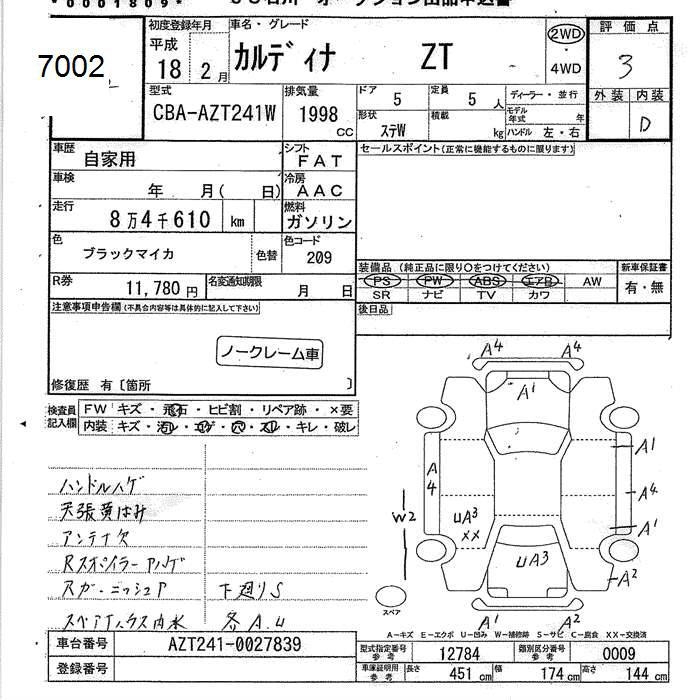 *0001809*
初度登録年月
平成 18 2月
車名・グレード
カルディナ ZT
2WD
4WD
評価点
3
7002
型式
CBA-AZT241W
排気量
1998 CC
ドア 5
定員 5 人
ディーラー・並行
外装 内装
形状 ステW
積載 kg
モデル年式 年
ハンドル 左・右
D
車歴
自家用
シフト
FAT
セールスポイント(正常に機能するものに限ります)
車検
年 月( 日)
冷房
AAC
走行
8万4千610 km
燃料
ガソリン
色
ブラックマイカ
色替
色コード
209
装備品 (純正品に限り○をつけてください)
新車保証書
PS PW ABS エアB AW
SR ナビ TV カワ
有・無
R券
11,780円
名変通知期限
月 日
後日品
注意事項申告欄(不具合内容等は具体的に記入して下さい)
ノークレーム車
修復歴 有〔箇所 〕
検査員記入欄
FW キズ・飛石・ヒビ割・リペア跡・×要
内装 キズ・汚レ・コゲ・穴・スレ・キレ・破レ
A4 A4
A1
A1
A4
A4
UA3
XX
W2
A1
UA3
A2
スペア
A1 A2
ハンドルハゲ
天張黄ばみ
アンテナ欠
Rスポイラーハゲ
下廻りS
スペアハウス内水
各A.U
A-キズ E-エクボ U-凹み W-補修跡 S-サビ C-腐食 XX-交換済
車台番号 AZT241-0027839
型式指定番号 参考 12784
類別区分番号 参考 0009
登録番号
車庫証明用 参考 長さ 451 cm 幅 174 cm 高さ 144 cm